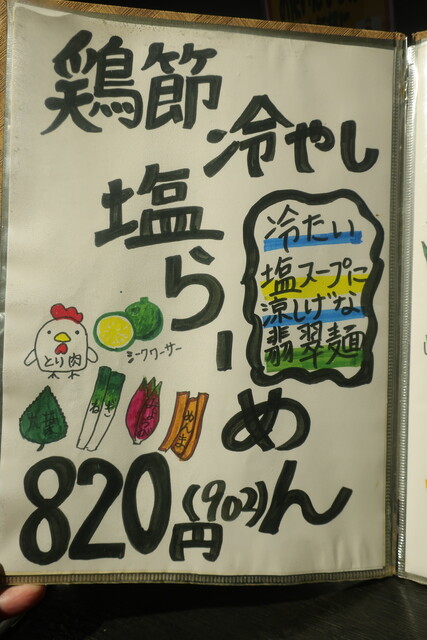 鶏節
冷やし
塩らーめん
冷たい
塩スープに
涼しげな
翡翠麺
シークワーサー
とり肉
大葉
ねぎ
みょうが
めんま
820円(902)